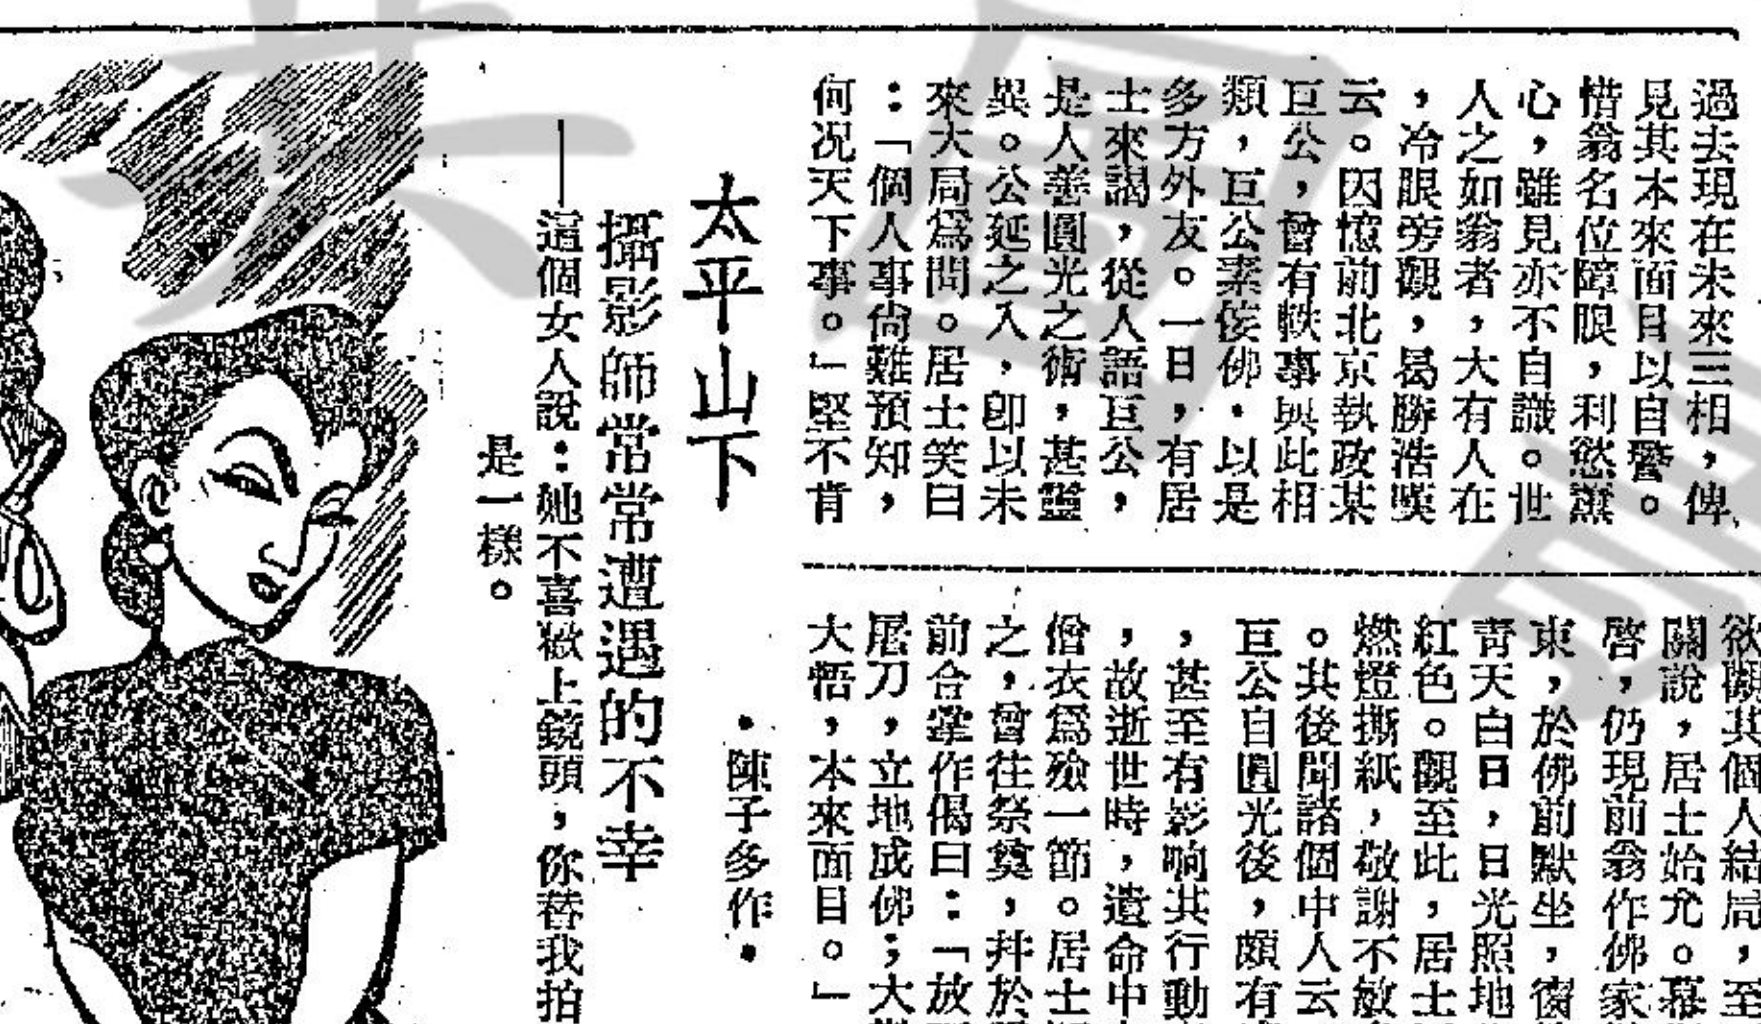 過去現在未來三相，俾
見其本來面目以自警。
惜翁名位障眼，利慾薰
心，雖見亦不自識。世
人之如翁者，大有人在
，冷眼旁觀，曷勝浩嘆
云。因憶前北京執政某
巨公，曾有軼事與此相
類，巨公素佞佛，以是
多方外友。一日，有居
士來謁，從人語巨公，
是人善圓光之術，甚靈
異。公延之入，卽以未
來大局爲問。居士笑曰
：「個人事尙難預知，
何况天下事。」堅不肯
關說，居士始允。幕
啓，仍現前翁作佛家
東，於佛前默坐，
青天白日，日光照地
紅色。觀至此，居士
燃燈撕紙，敬謝不敏
。其後聞諸個中人云
巨公自圓光後，頗有
，甚至有影响其行動
，故逝世時，遺命中
僧衣爲殮一節。居士
之，曾往祭奠，幷於
前合掌作偈曰：「放
屠刀，立地成佛；大
大悟，本來面目。」
太平山下
•陳子多作•
攝影師常常遭遇的不幸
——這個女人說：她不喜歡上鏡頭，你替我拍
是一樣。